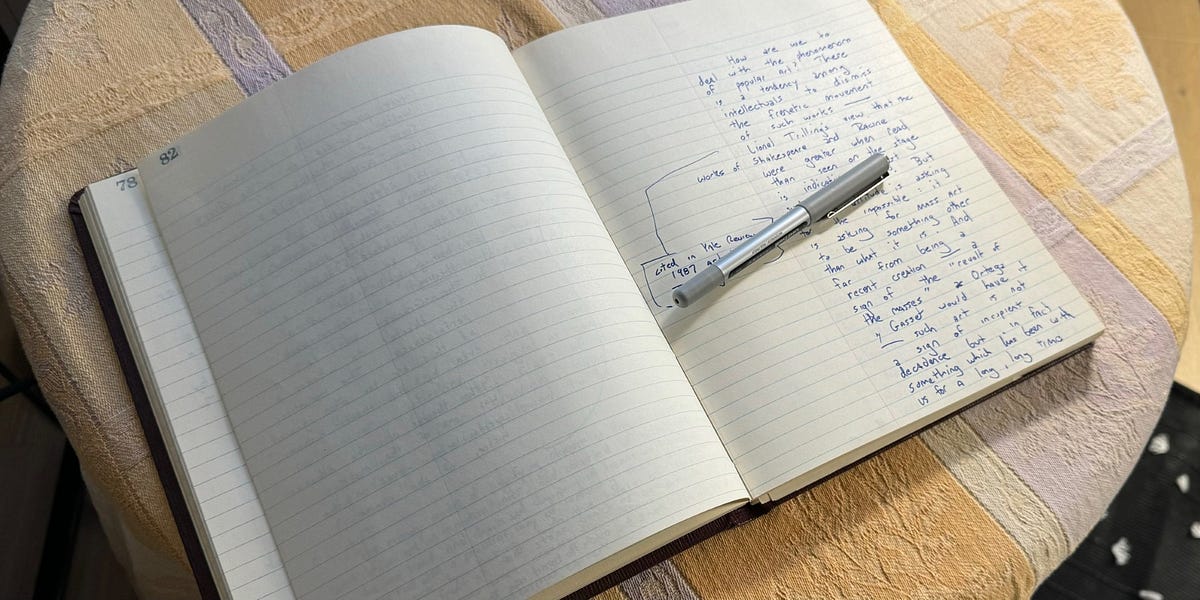 78
82
How are we to
deal with the phenomenon
of popular art? There
is a tendency among
intellectuals to dismiss
the frenetic movement
of such works —
Lionel Trilling's view that the
works of Shakespeare and Racine
were greater when read
than seen on the stage
is But
is asking
the impossible: it
is asking for mass art
to be something other
than what it is. And
far from being a
recent creation — a
sign of the "revolt of
the masses" as Ortega
y Gasset would have it
— such art is not
a sign of incipient
decadence but in fact
something which has been with
us for a long, long time
cited in Yale Review
1987